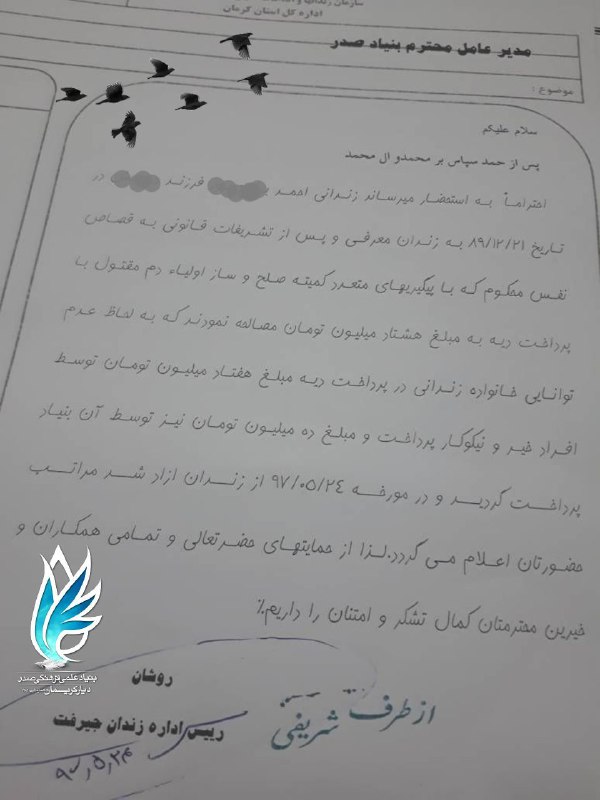 سازمان زندانها و
اداره کل استان کرمان
مدیر عامل محترم بنیاد صدر
موضوع :
سلام علیکم
پس از حمد سپاس بر محمدو ال محمد
احتراماً به استحضار میرساند زندانی احمد فرزند در
تاریخ ۸۹/۱۲/۲۱ به زندان معرفی و پس از تشریفات قانونی به قصاص
نفس محکوم که با پیگیریهای متعدد کمیته صلح و ساز اولیاء دم مقتول با
پرداخت دیه به مبلغ هشتاد میلیون تومان مصالحه نمودند که به لحاظ عدم
توانایی خانواده زندانی در پرداخت دیه مبلغ هفتاد میلیون تومان توسط
افراد خیر و نیکوکار پرداخت و مبلغ ده میلیون تومان نیز توسط آن بنیاد
پرداخت گردید و در مورخه ۹۷/۰۵/۲۴ از زندان ازاد شد مراتب
حضورتان اعلام می گردد.لذا از حمایتهای حضرتعالی و تمامی همکاران و
خیرین محترمتان کمال تشکر و امتنان را داریم.٪
روشان
رییس اداره زندان جیرفت
از طرف شریفی
۹۷٫۵٫۲۴
بنیاد علمی فرهنگی صدر
دیار کریمان